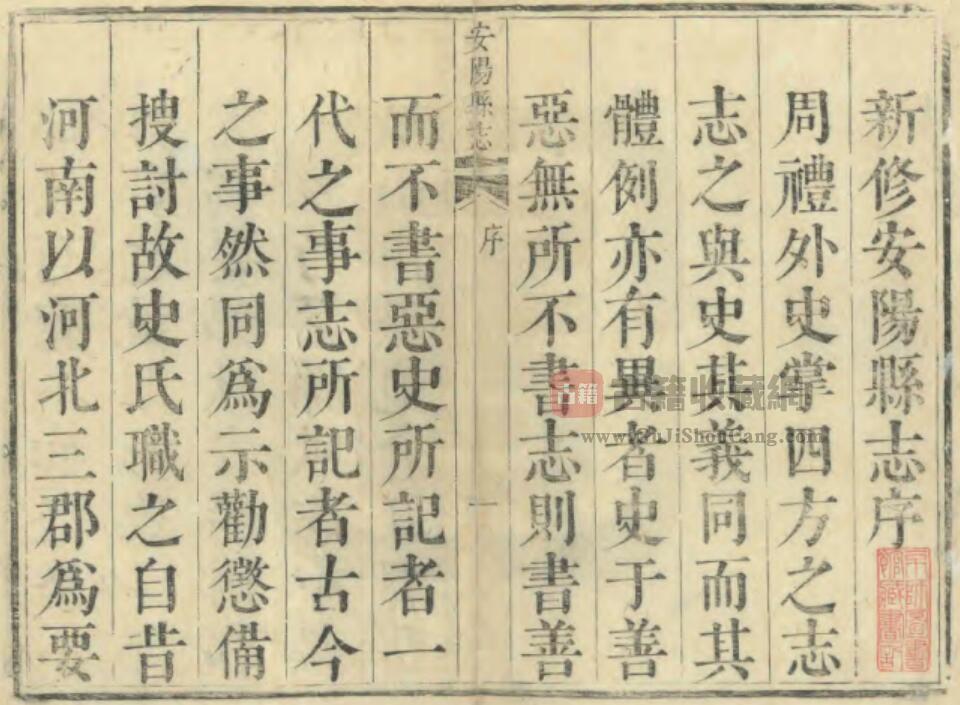 新修安陽縣志序
周禮外史掌四方之志
志之與史其義同而其
體例亦有異者史于善
惡無所不書志則書善
安陽縣志 序 一
而不書惡史所記者一
代之事志所記者古今
之事然同爲示勸懲備
搜討故史氏職之自昔
河南以河北三郡爲要
古籍
古籍收藏網
www.GuJiShouCang.com